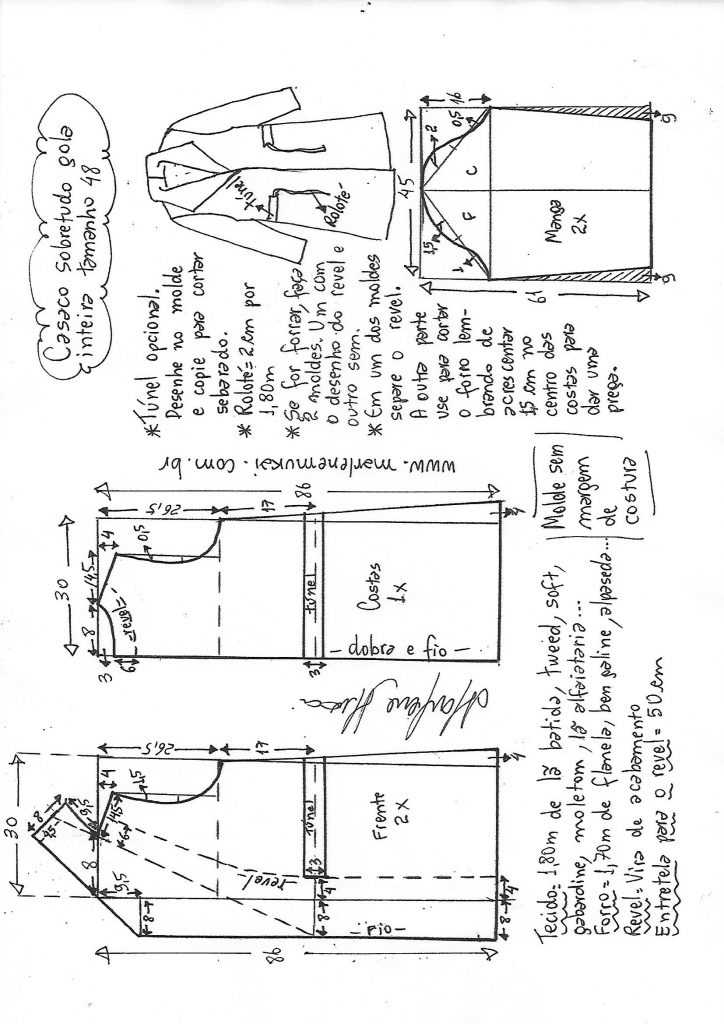 Casaco sobretudo gola
inteira tamanho 48
*Túnel opcional.
Desenhe no molde
e copie para cortar
sebarado.
*Roloté= 2 cm por
1,80m
*Se for forrar, faça
2 moldes. Um com
o desenho do revel e
outro sem.
*Em um dos moldes
separe o revel.
A outa parte
use para cortar
o forro lem-
brando de
acrescentar
1,5 cm no
centro das
costas para
dar uma
prega.
Túnel
Roloté
45
16
2
0,5
1,5
1
C
F
Manga
2x
61
6
6
www.marlenemukai.com.br
86
26,5
17
30
14,5
8
4
0,5
revel
3
6
túnel
3
Costas
1x
- dobra e fio -
4
Molde sem
margem
de
costura
30
26,5
17
8
7,5
9,5
4
14,5
1,5
6
8
9,5
revel
túnel
3
4
Frente
2x
8
8
- Fio -
8
4
4
86
Tecido= 1,80m de lã batida, tweed, soft,
gabardine, moletom, lã alfaiataria...
Forro= 1,70m de flanela, bengaline, alpaseda...
Revel= Vira de acabamento
Entretela para o revel = 50 cm